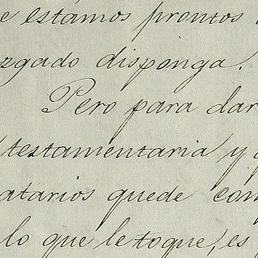 e estámos prontos
zgado disponga.
Pero para dar
testamentaria y
atarios quede com
lo que le toque, es